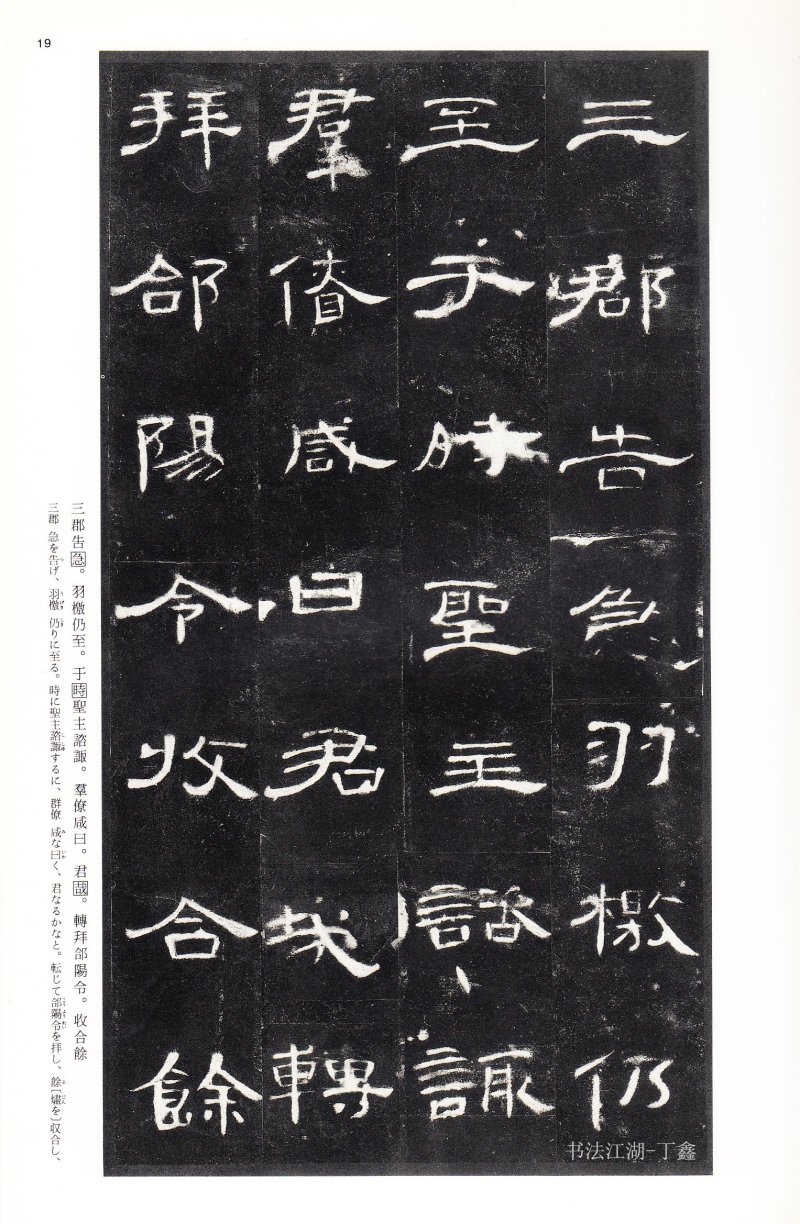 19
三郡告急羽檄仍
至于時聖主諮諏
羣僚咸曰君哉轉
拜郃陽令收合餘
三郡告急。羽檄仍至。于時聖主諮諏。羣僚咸曰。君哉。轉拜郃陽令。收合餘
三郡 急を告げ、羽檄 仍りに至る。時に聖主諮諏するに、群僚 咸な曰く、君なるかなと。転じて郃陽令を拝し、餘〔燼を〕収合し、
书法江湖-丁鑫